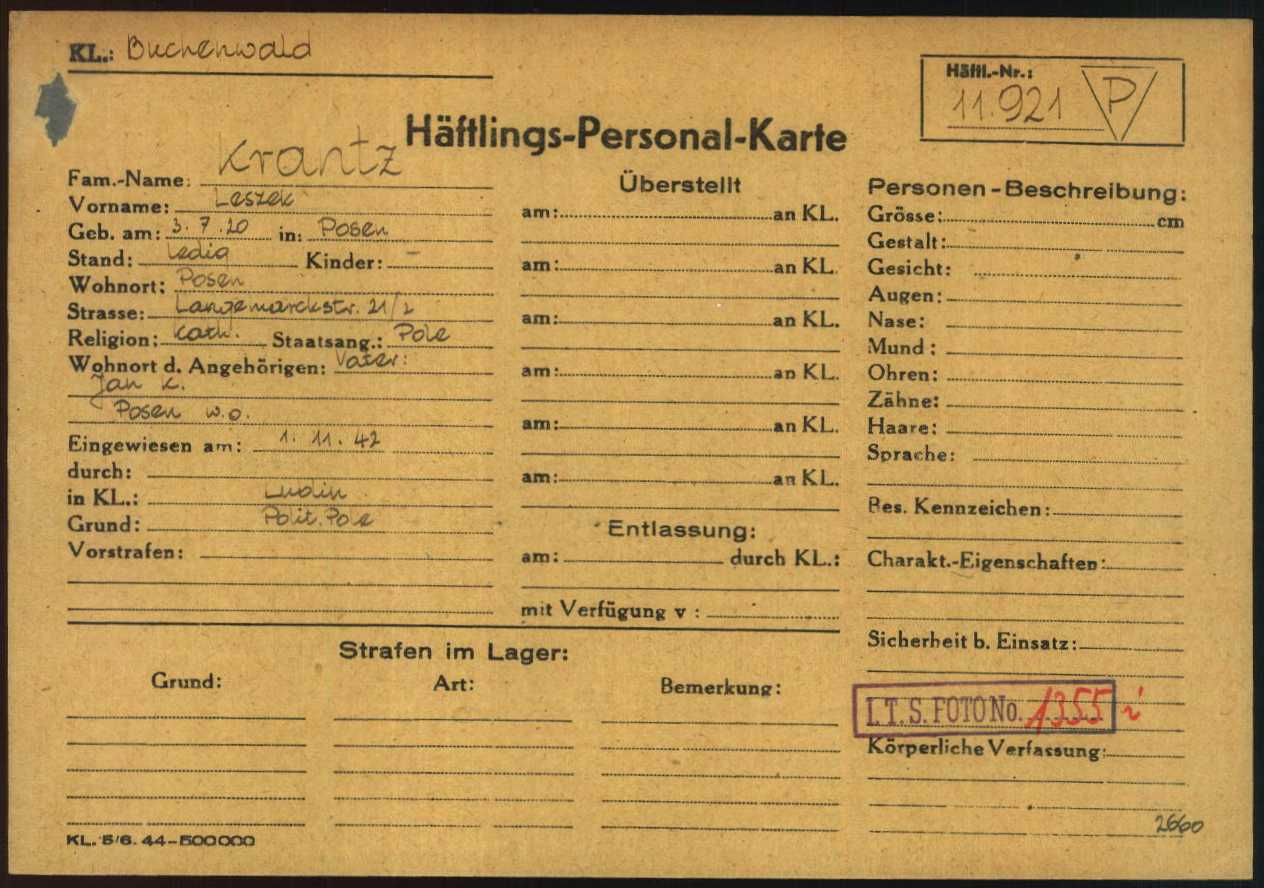 KL.: Buchenwald
Häftl.-Nr.:
11.921 P
Häftlings-Personal-Karte
Fam.-Name: Krantz
Vorname: Leszek
Geb. am: 3.7.20 in: Posen
Stand: ledig Kinder: –
Wohnort: Posen
Strasse: Langemarckstr. 21/2
Religion: kath. Staatsang.: Pole
Wohnort d. Angehörigen: Vater:
Jan K.
Posen w.o.
Eingewiesen am: 1. 11. 42
durch:
in KL.:
Grund: Polit. Pole
Vorstrafen:
Überstellt
am: an KL.
am: an KL.
am: an KL.
am: an KL.
am: an KL.
am: an KL.
Entlassung:
am: durch KL.:
mit Verfügung v :
Personen-Beschreibung:
Grösse: cm
Gestalt:
Gesicht:
Augen:
Nase:
Mund :
Ohren:
Zähne:
Haare:
Sprache:
Bes. Kennzeichen:
Charakt.-Eigenschaften:
Sicherheit b. Einsatz:
I.T.S. FOTO No. 1355 i
Körperliche Verfassung:
2660
Strafen im Lager:
Grund: Art: Bemerkung:
KL. 5/6. 44-500000